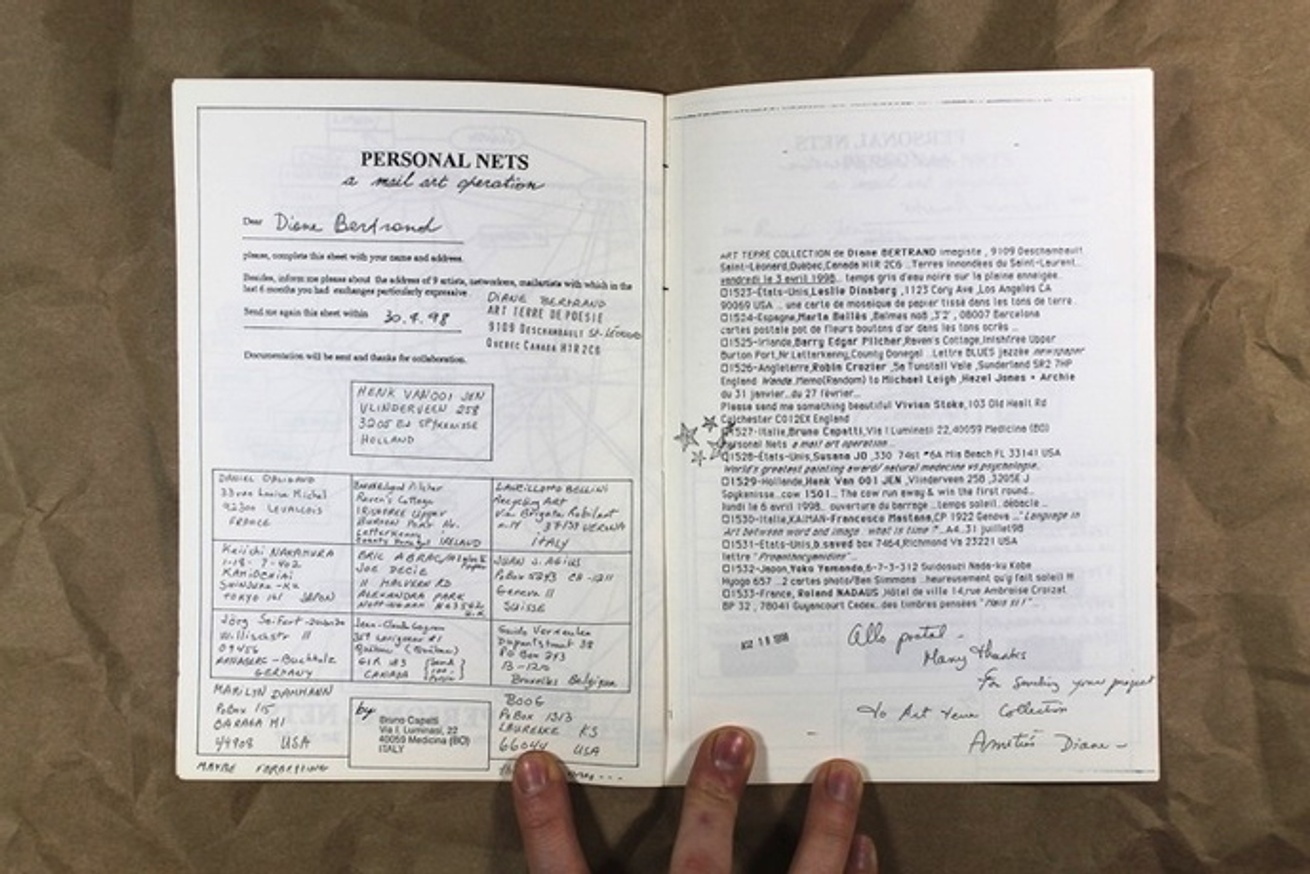 PERSONAL NETS
a mail art operation
Dear Diane Bertrand
please, complete this sheet with your name and address.
Besides, inform me please about the address of 9 artists, networkers, mailartists with which in the
last 6 months you had exchanges particularly expressive.
Send me again this sheet within 30.4.98
DIANE BERTRAND
ART TERRE DE POESIE
9109 DESCHAMBAULT ST-LÉONARD
QUEBEC CANADA H1R 2C6
Documentation will be sent and thanks for collaboration.
HENK VAN 001 JEN
VLINDERVEEN 258
3205 EJ SPYKENISSE
HOLLAND
DANIEL DALIGAND
33 rue Louise Michel
92300 LEVALLOIS
FRANCE
Pilcher
Raven's Cottage
INISHFREE Upper
BURTON PORT Nr.
Letterkenny
County Donegal IRELAND
BELLINI
Recycling Art
Via Brigata Robilant
37134 VERONA
ITALY
Keiichi NAKAMURA
1-18-7-402
KAMIOCHIAI
SHINJUKU-KU
TOKYO 161 JAPON
BRIC A BRAC
JOE DECIE
11 MALVERN RD
ALEXANDRA PARK
NOTTINGHAM
U.K.
JUAN J. AGIUS
PoBox 5243 CH-1211
Geneva 11
SUISSE
Jörg Seifert
Willischstr 11
09456
ANNABERG-Buchholz
GERMANY
Jean-Claude Gagnon
359 Lavigueur #1
Québec (Québec)
G1R 1B3
CANADA
Guido Vermeulen
Dupontstraat 38
PO Box 243
B-1210
Bruxelles Belgique
MARILYN DAMMANN
PoBox 115
BARAGA MI
49908 USA
by
Bruno Capatti
Via I. Luminasi, 22
40059 Medicina (BO)
ITALY
BOOG
PoBox 1313
LAWRENCE KS
66044 USA
MAYBE FORGETTING
ART TERRE COLLECTION de Diane BERTRAND imagiste , 9109 Deschambault
Saint-Léonard,Québec,Canada H1R 2C6 ...Terres innondées du Saint-Laurent...
vendredi le 3 avril 1998... temps gris d'eau noire sur la plaine enneigée.
❑1523-États-Unis,Leslie Dinsberg ,1123 Cory Ave ,Los Angeles CA
90069 USA ... une carte de mosaïque de papier tissé dans les tons de terre.
❑1524-Espagne,Marta Bellès ,Balmes no8 ,3'2' , 08007 Barcelona
cartes postale pot de fleurs boutons d'or dans les tons ocrés ...
❑1525-Irlande,Barry Edgar Pilcher,Raven's Cottage,Inishfree Upper
Burton Port,Nr.Letterkenny,County Donegal ..Lettre BLUES jazzée newspaper
❑1526-Angleterre,Robin Crozier ,5a Tunstall Vale ,Sunderland SR2 7HP
England Irlande.Memo(Random) to Michael Leigh ,Hazel Jones • Archie
du 31 janvier..du 27 février...
Please send me something beautiful Vivian Stoke,103 Old Healt Rd
Colchester CO12EX England
❑1527-Italie,Bruno Capatti,Via I Luminasi 22,40059 Medicina (BO)
Personal Nets a mail art operation...
❑1528-États-Unis,Susana JO ,330 74st #6A Mia Beach FL 33141 USA
World's greatest painting award/ natural medecine vs psychologie..
❑1529-Hollande,Henk Van 001 JEN ,Vlinderveen 258 ,3205E J
Spykenisse...cow 1501... The cow run away & win the first round...
lundi le 6 avril 1998.. ouverture du barrage ...temps soleil ..débacle ...
❑1530-Italie,KAIMAN-Francesco Mastana,CP 1922 Genova ..."Language in
Art between word and image : what is time ?"...A4...31 juillet98
❑1531-États-Unis,b.saved box 7464,Richmond Va 23221 USA
lettre "Proanthocyanidins"...
❑1532-Japon,Yoko Yamanda,6-7-3-312 Suidosuzi Nada-ku Kobe
Hyogo 657 ...2 cartes photo/Ben Simmons ...heureusement qu'y fait soleil !!!
❑1533-France, Roland NADAUS ,Hôtel de ville 14,rue Ambroise Croizat
BP 32 , 78041 Guyancourt Cedex..des timbres pensées
Allo postal -
Many thanks
For Sending your project
to Art Terre Collection
Amitiés Diane -